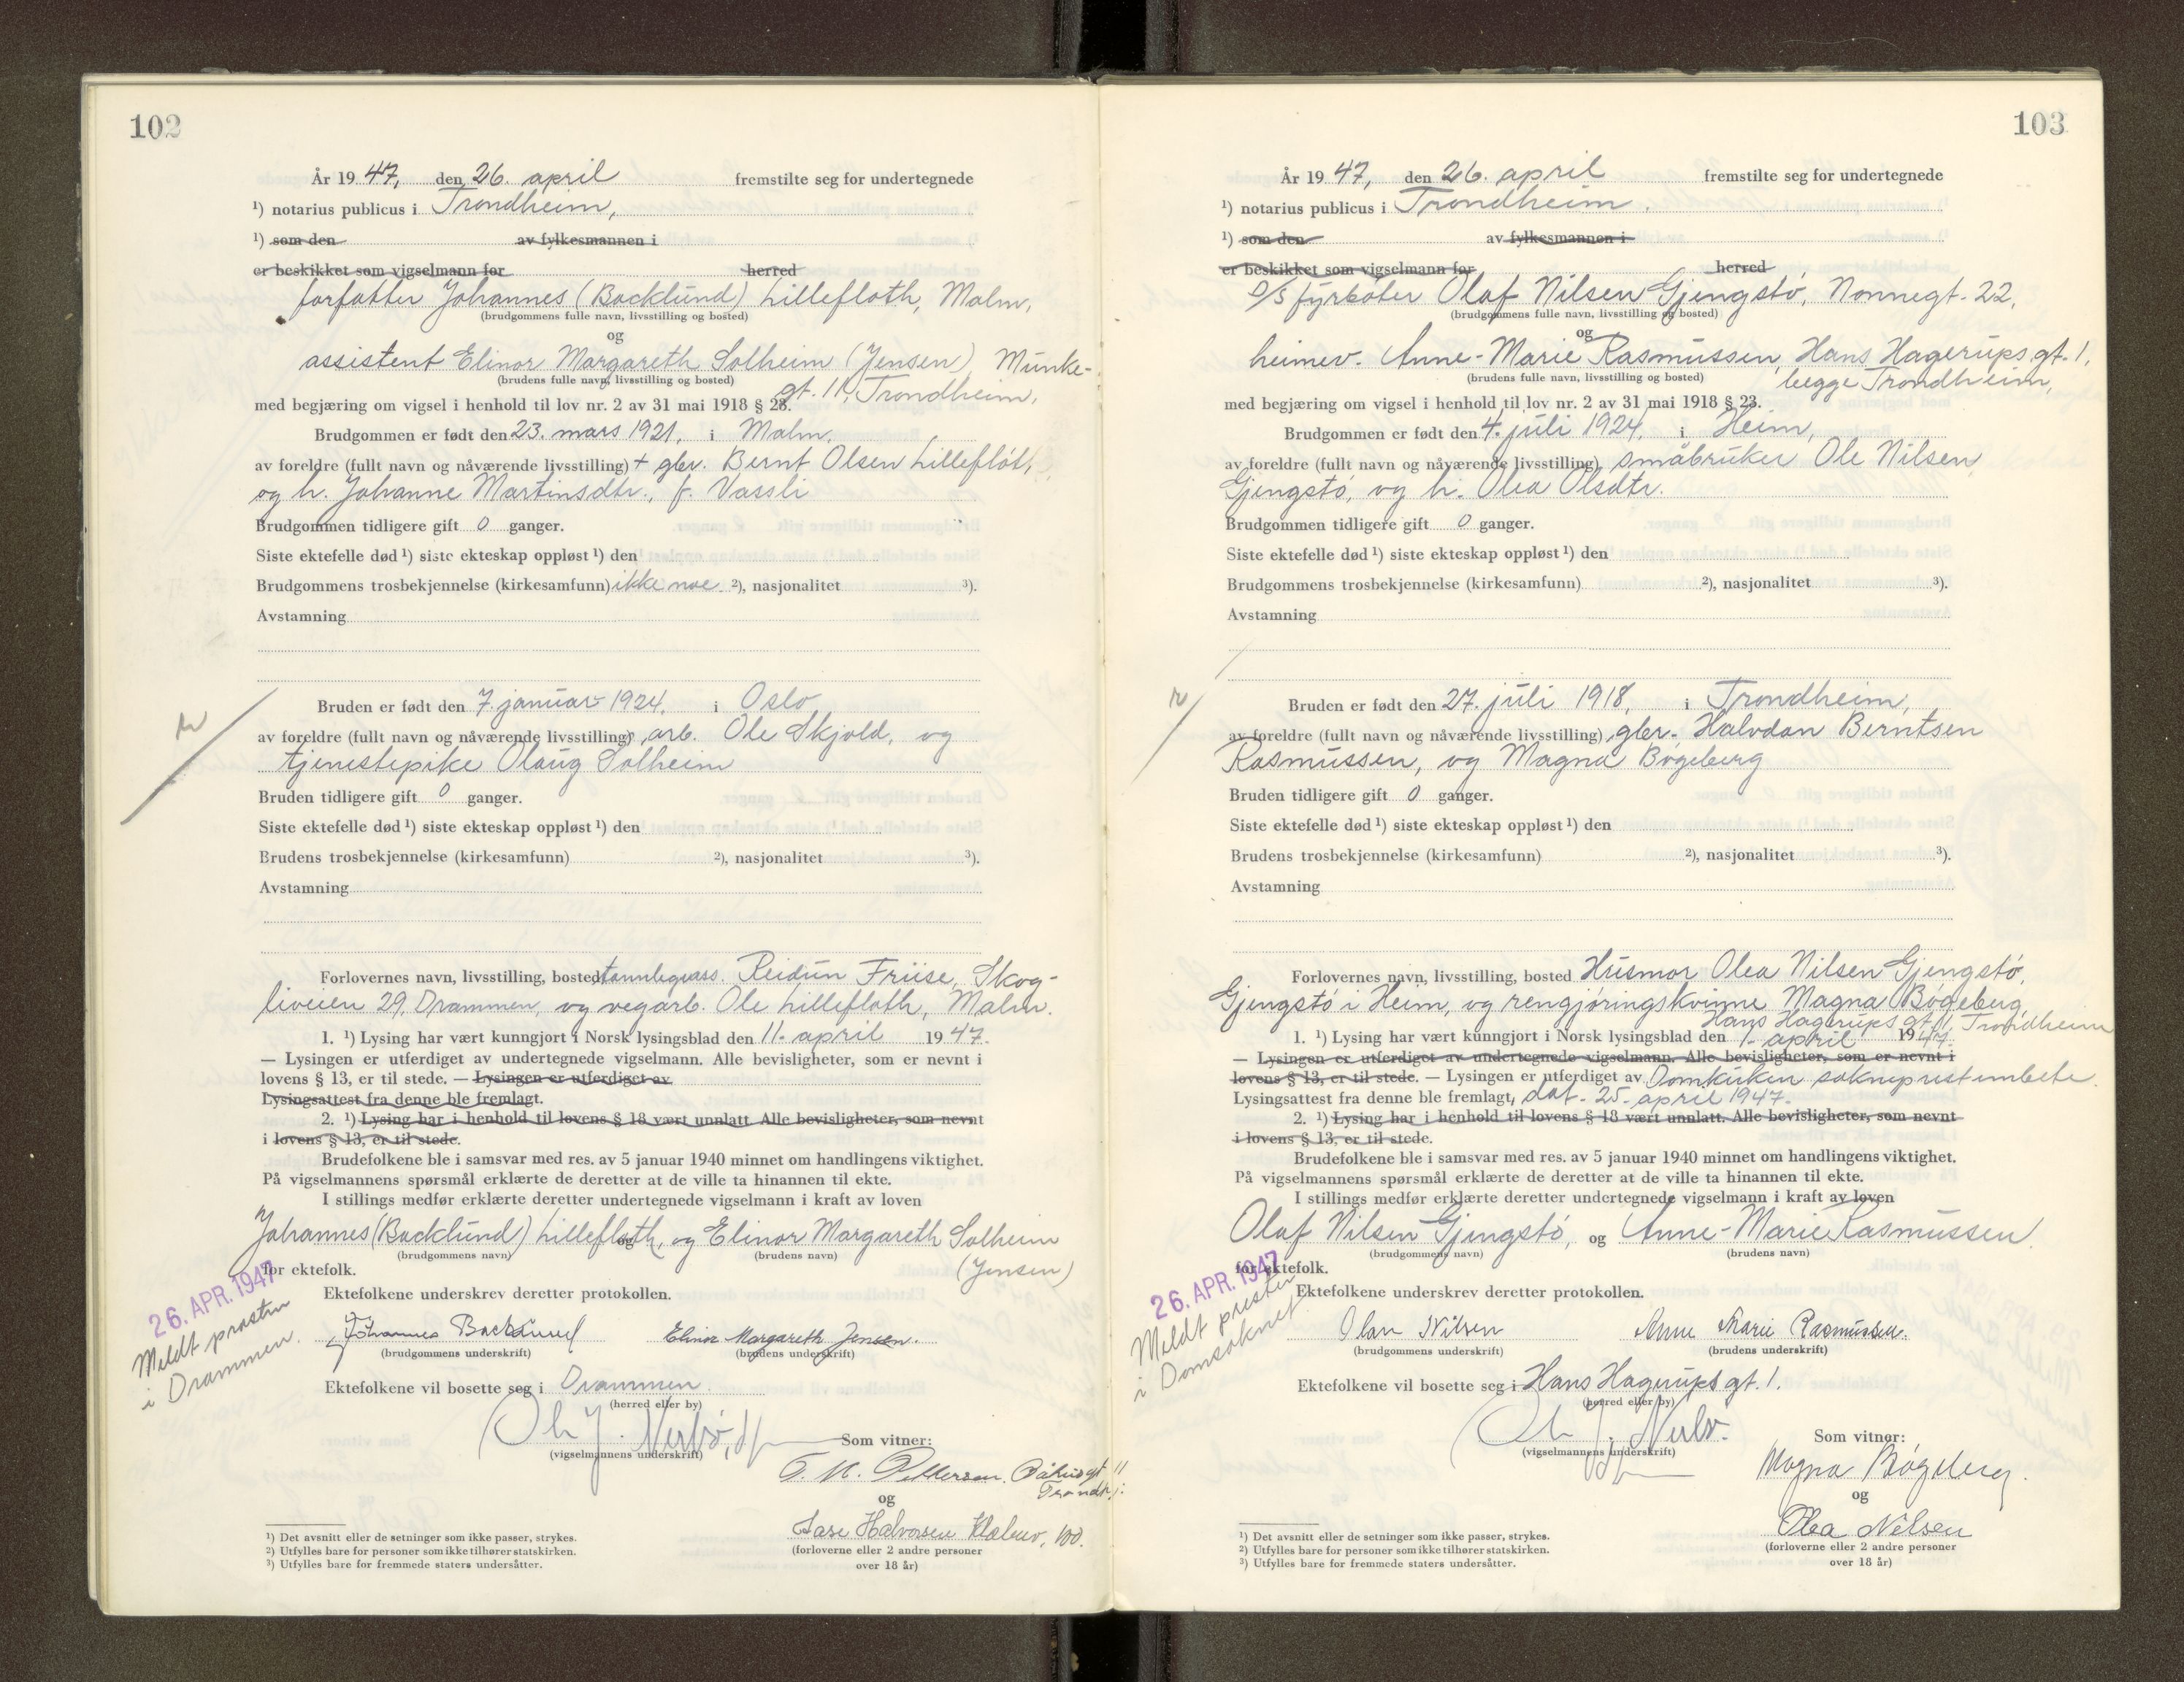 102
År 19 47, den 26. april fremstilte seg for undertegnede
¹) notarius publicus i Trondheim,
¹) som den av fylkesmannen i
er beskikket som vigselmann for herred
forfatter Johannes (Backlund) Lillefloth, Malm,
(brudgommens fulle navn, livsstilling og bosted)
og
assistent Elinor Margareth Solheim (Jensen), Munke-
(brudens fulle navn, livsstilling og bosted)
gt. 11, Trondheim,
med begjæring om vigsel i henhold til lov nr. 2 av 31 mai 1918 § 23.
Brudgommen er født den 23. mars 1921, i Malm,
av foreldre (fullt navn og nåværende livsstilling) + gbr. Bernt Olsen Lillefløt,
og h. Johanne Martinsdtr., f. Vassli
Brudgommen tidligere gift 0 ganger.
Siste ektefelle død ¹) siste ekteskap oppløst ¹) den
Brudgommens trosbekjennelse (kirkesamfunn) ikke noe ²), nasjonalitet ³).
Avstamning
Bruden er født den 7. januar 1924, i Oslo
av foreldre (fullt navn og nåværende livsstilling), arb. Ole Skjold, og
tjenestepike Olaug Solheim
Bruden tidligere gift 0 ganger.
Siste ektefelle død ¹) siste ekteskap oppløst ¹) den
Brudens trosbekjennelse (kirkesamfunn) ²), nasjonalitet ³).
Avstamning
Forlovernes navn, livsstilling, bosted tannlegeass. Reidun Friise, Skog-
liveien 29, Drammen, og vegarb. Ole Lillefloth, Malm.
1. ¹) Lysing har vært kunngjort i Norsk lysingsblad den 11. april 19 47.
— Lysingen er utferdiget av undertegnede vigselmann. Alle bevisligheter, som er nevnt i
lovens § 13, er til stede. — Lysingen er utferdiget av
Lysingsattest fra denne ble fremlagt.
2. ¹) Lysing har i henhold til lovens § 18 vært unnlatt. Alle bevisligheter, som nevnt
i lovens § 13, er til stede.
Brudefolkene ble i samsvar med res. av 5 januar 1940 minnet om handlingens viktighet.
På vigselmannens spørsmål erklærte de deretter at de ville ta hinannen til ekte.
I stillings medfør erklærte deretter undertegnede vigselmann i kraft av loven
Johannes (Backlund) Lillefloth, og Elinor Margareth Solheim
(brudgommens navn) og (brudens navn)
(Jensen)
for ektefolk.
26. APR. 1947
Meldt presten
i Drammen.
Ektefolkene underskrev deretter protokollen.
Johannes Backlund Elinor Margareth Jensen.
(brudgommens underskrift) (brudens underskrift)
Ektefolkene vil bosette seg i Drammen
(herred eller by)
(vigselmannens underskrift) Som vitner:
Pettersen,
Trondhj.
og
Aase Halvorsen Klæbuv.
(forloverne eller 2 andre personer
over 18 år)
¹) Det avsnitt eller de setninger som ikke passer, strykes.
²) Utfylles bare for personer som ikke tilhører statskirken.
³) Utfylles bare for fremmede staters undersåtter.
103
År 19 47, den 26. april fremstilte seg for undertegnede
¹) notarius publicus i Trondheim.
¹) som den av fylkesmannen i
er beskikket som vigselmann for herred
D/S fyrbøter Olaf Nilsen Gjengstö, Nonnegt. 22,
(brudgommens fulle navn, livsstilling og bosted)
og
heimev. Anne-Marie Rasmussen, Hans Hagerups gt. 1,
(brudens fulle navn, livsstilling og bosted)
begge Trondheim,
med begjæring om vigsel i henhold til lov nr. 2 av 31 mai 1918 § 23.
Brudgommen er født den 4. juli 1924, i Heim,
av foreldre (fullt navn og nåværende livsstilling), småbruker Ole Nilsen
Gjengstö, og h. Olea Olsdtr.
Brudgommen tidligere gift 0 ganger.
Siste ektefelle død ¹) siste ekteskap oppløst ¹) den
Brudgommens trosbekjennelse (kirkesamfunn) ²), nasjonalitet ³).
Avstamning
Bruden er født den 27. juli 1918, i Trondheim,
av foreldre (fullt navn og nåværende livsstilling), gbr. Halvdan Berntsen
Rasmussen, og Magna Bögeberg
Bruden tidligere gift 0 ganger.
Siste ektefelle død ¹) siste ekteskap oppløst ¹) den
Brudens trosbekjennelse (kirkesamfunn) ²), nasjonalitet ³).
Avstamning
Forlovernes navn, livsstilling, bosted Husmor Olea Nilsen Gjengstö,
Gjengstö i Heim, og rengjöringskvinne Magna Bögeberg,
Hans Hagerups gt. 1, Trondheim
1. ¹) Lysing har vært kunngjort i Norsk lysingsblad den 1. april 19 47.
— Lysingen er utferdiget av undertegnede vigselmann. Alle bevisligheter, som er nevnt i
lovens § 13, er til stede. — Lysingen er utferdiget av Domkirken sokneprestembete.
Lysingsattest fra denne ble fremlagt, dat. 25. april 1947.
2. ¹) Lysing har i henhold til lovens § 18 vært unnlatt. Alle bevisligheter, som nevnt
i lovens § 13, er til stede.
Brudefolkene ble i samsvar med res. av 5 januar 1940 minnet om handlingens viktighet.
På vigselmannens spørsmål erklærte de deretter at de ville ta hinannen til ekte.
I stillings medfør erklærte deretter undertegnede vigselmann i kraft av loven
Olaf Nilsen Gjengstö, og Anne-Marie Rasmussen.
(brudgommens navn) (brudens navn)
for ektefolk.
26. APR. 1947
Meldt presten
i Domsoknet
Ektefolkene underskrev deretter protokollen.
Olav Nilsen Anne Marie Rasmussen.
(brudgommens underskrift) (brudens underskrift)
Ektefolkene vil bosette seg i Hans Hagerups gt. 1.
(herred eller by)
(vigselmannens underskrift) Som vitner:
Magna Bögeberg.
og
Olea Nilsen
(forloverne eller 2 andre personer
over 18 år)
¹) Det avsnitt eller de setninger som ikke passer, strykes.
²) Utfylles bare for personer som ikke tilhører statskirken.
³) Utfylles bare for fremmede staters undersåtter.